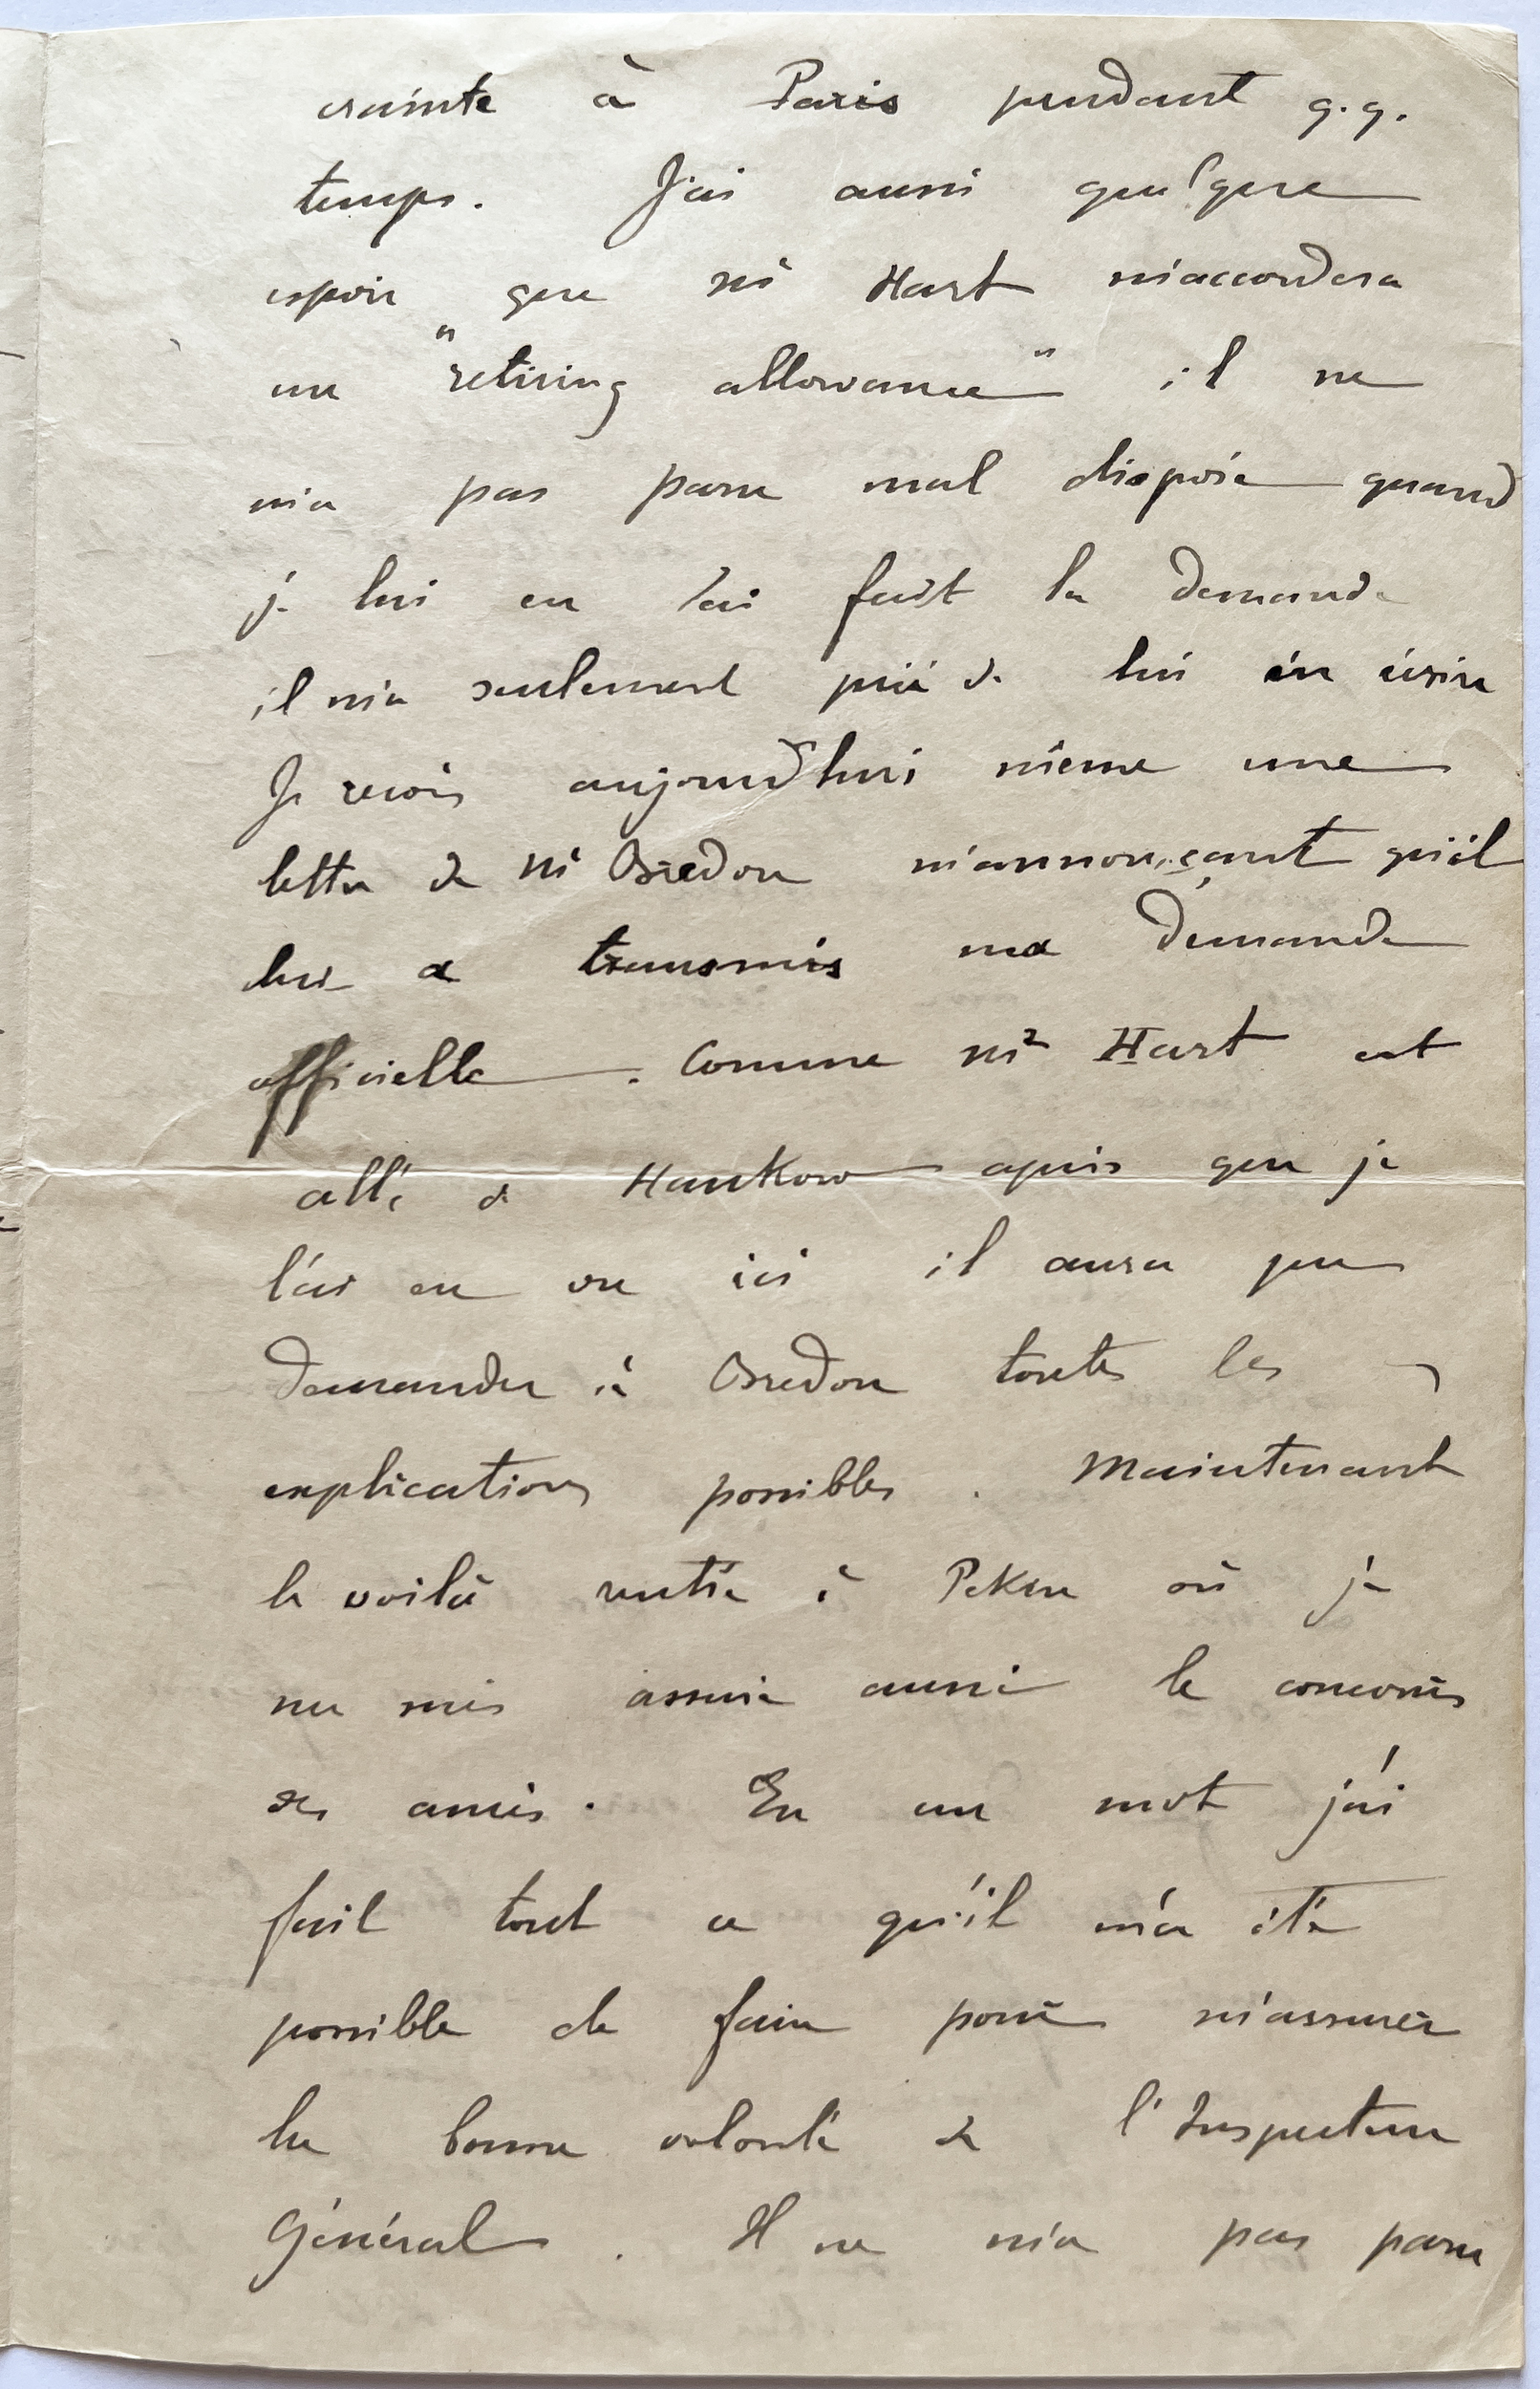 crainte à Paris pendant q.q.
temps. J'ai aussi quelque
espoir que Mr Hart m'accordera
un "retiring allowance" il ne
m'a pas paru mal disposé quand
je lui en ai fait la demande
il m'a seulement prié de lui en écrire
Je reçois aujourd'hui même une
lettre de Mr Bredon m'annonçant qu'il
lui a transmis ma demande
officielle. Comme Mr Hart est
allé à Hankow après que je
l'ai eu vu ici il aura pu
demander à Bredon toutes les
explications possibles. Maintenant
le voilà rentré à Pekin où je
me suis assuré aussi le concours
des amis. En un mot j'ai
fait tout ce qu'il m'a été
possible de faire pour m'assurer
la bonne volonté de l'Inspecteur
Général. Il ne m'a pas paru